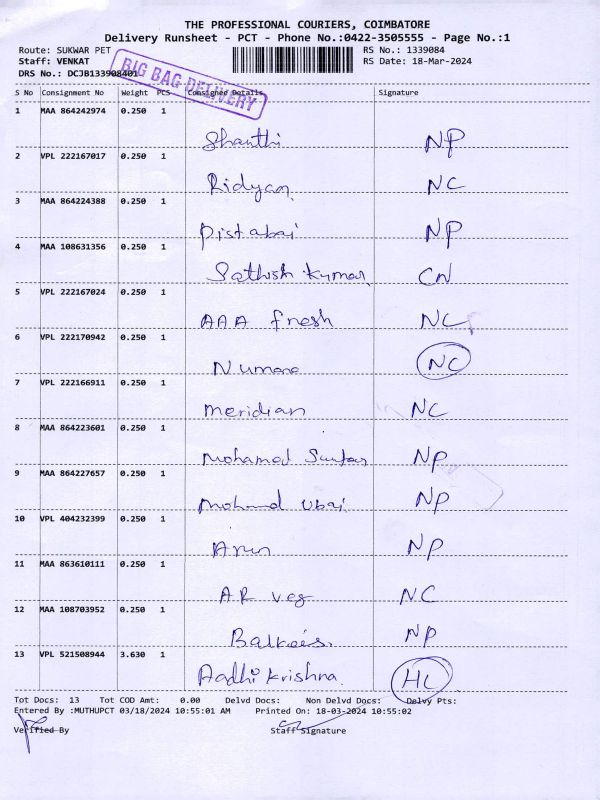 THE PROFESSIONAL COURIERS, COIMBATORE
Delivery Runsheet - PCT - Phone No.:0422-3505555 - Page No.:1
Route: SUKWAR PET RS No.: 1339084
Staff: VENKAT RS Date: 18-Mar-2024
DRS No.: DCJB133908401
BIG BAG DELIVERY
S No Consignment No Weight PCS Consignee Details Signature
1 MAA 864242974 0.250 1
Shanthi NP
2 VPL 222167017 0.250 1
Ridycon NC
3 MAA 864224388 0.250 1
Pistabai NP
4 MAA 108631356 0.250 1
Sathish Kumar CN
5 VPL 222167024 0.250 1
AAA fresh NC
6 VPL 222170942 0.250 1
Numano NC
7 VPL 222166911 0.250 1
meridian NC
8 MAA 864223601 0.250 1
Mohamed NP
9 MAA 864227657 0.250 1
Mohmd Ubai NP
10 VPL 404232399 0.250 1
Arun NP
11 MAA 863610111 0.250 1
AR veg NC
12 MAA 108703952 0.250 1
Balkees NP
13 VPL 521508944 3.630 1
Aadhi Krishna HL
Tot Docs: 13 Tot COD Amt: 0.00 Delvd Docs: Non Delvd Docs: Delvy Pts:
Entered By :MUTHUPCT 03/18/2024 10:55:01 AM Printed On: 18-03-2024 10:55:02
Verified By Staff Signature